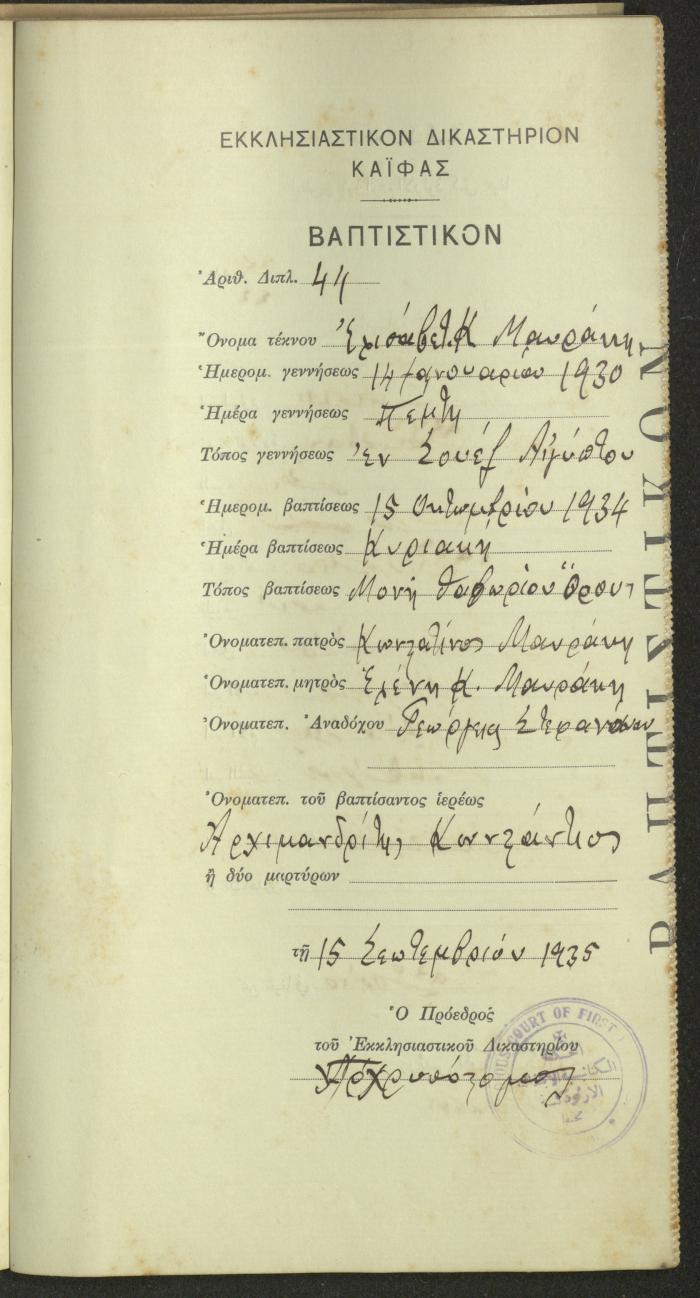 ΕΚΚΛΗΣΙΑΣΤΙΚΟΝ ΔΙΚΑΣΤΗΡΙΟΝ
ΚΑΪΦΑΣ
ΒΑΠΤΙΣΤΙΚΟΝ
Ἀριθ. Διπλ. 44
Ὄνομα τέκνου Ἐλισάβετ Κ Μαυράκη
Ἡμερομ. γεννήσεως 14 Ιανουαρίου 1930
Ἡμέρα γεννήσεως Πεμτη
Τόπος γεννήσεως ἐν Σουέζ Αἰγύπτου
Ἡμερομ. βαπτίσεως 15 Οκτωμβρίου 1934
Ἡμέρα βαπτίσεως Κυριακή
Τόπος βαπτίσεως Μονή Θαβωρίου Ὄρους
Ὀνοματεπ. πατρὸς Κωνσταντίνος Μαυράκη
Ὀνοματεπ. μητρὸς Ἑλένη Κ. Μαυράκη
Ὀνοματεπ. Ἀναδόχου Γεώργιος
Ὀνοματεπ. τοῦ βαπτίσαντος ἱερέως
Αρχιμανδρίτης
ἢ δύο μαρτύρων
τῇ 15 Σεπτεμβρίου 1935
Ὁ Πρόεδρος
τοῦ Ἐκκλησιαστικοῦ Δικαστηρίου
COURT OF FIRST
ΒΑΠΤΙΣΤΙΚΟΝ